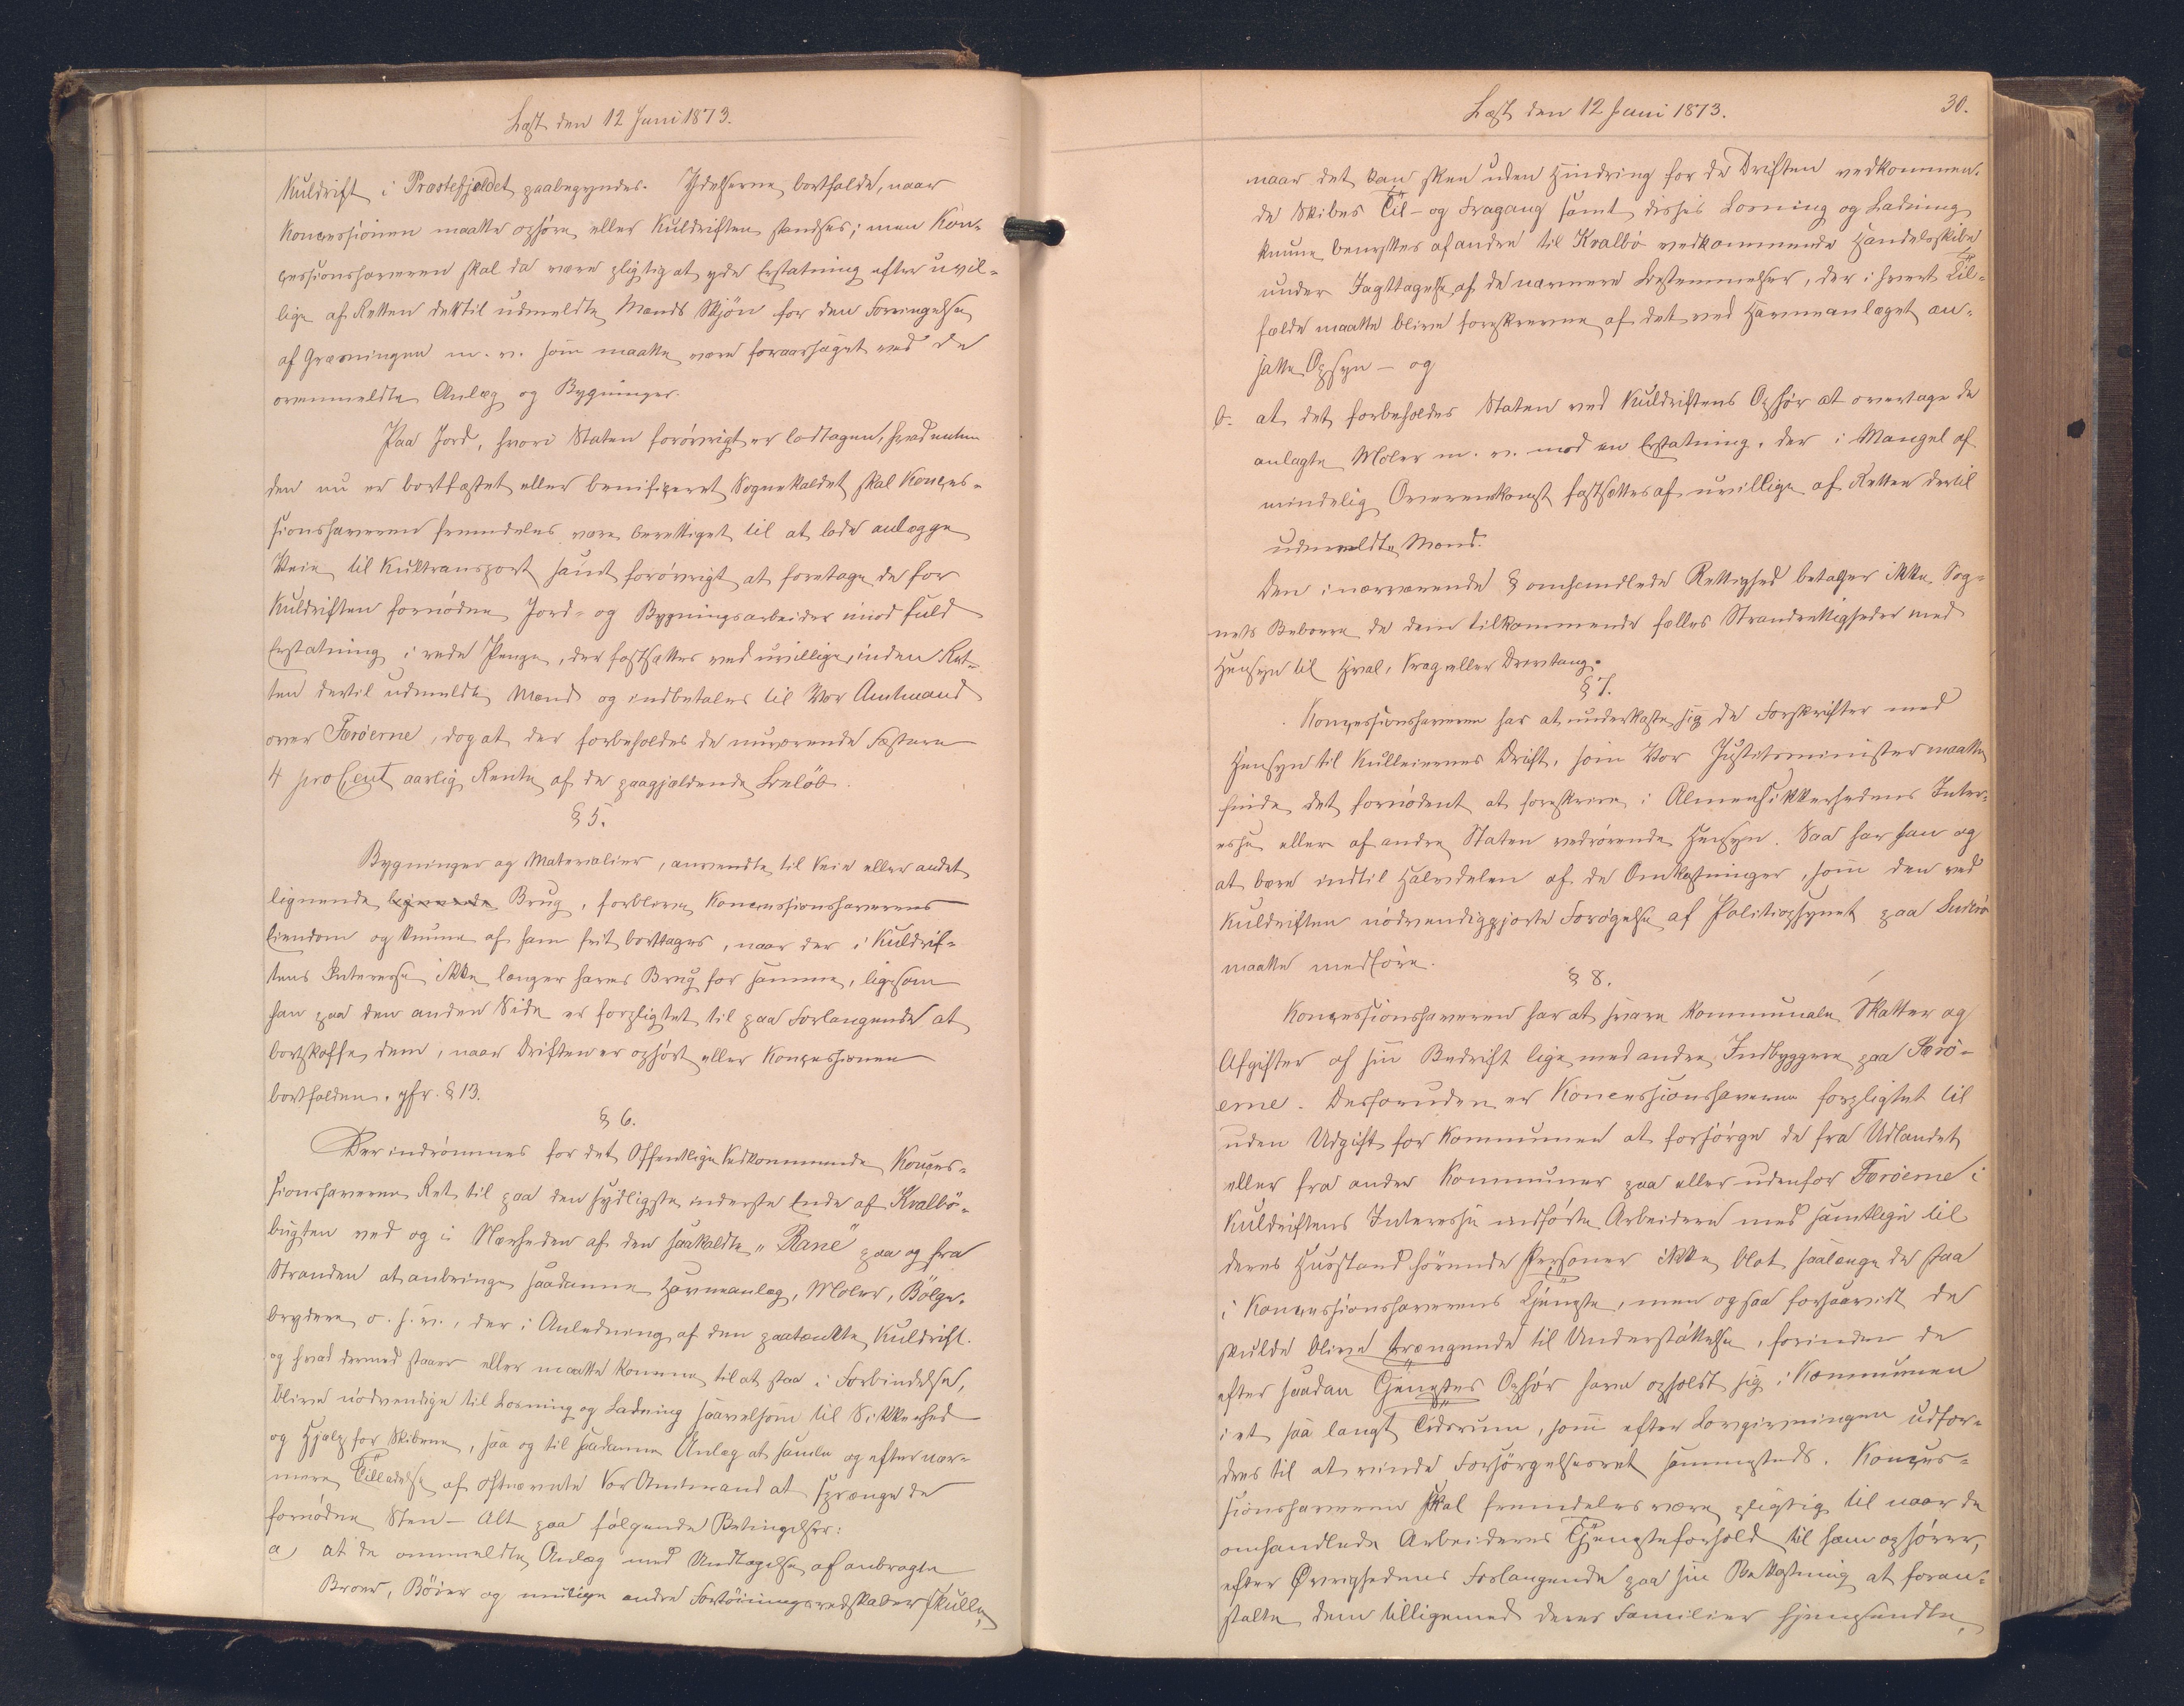 Læst den 12 Juni 1873.
Kuldrift i Præstefjeldet paabegyndes. Ydelserne bortfalde, naar
Koncessionen maatte ophøre eller Kuldriften standses; men Kon-
cessionshaveren skal da være pligtig at yde Erstatning efter uvil-
lige af Retten dertil udmeldte Mænds Skjön for den Forringelse
af Græsningen m. v. som maatte være foraarsaget ved de
ovenmeldte Anlæg og Bygninger.
Paa Jord, hvori Staten forövrigt er lodtagen, hvad enten
den nu er bortfæstet eller benificeret Sognekaldet skal Konces-
sionshaveren fremdeles være berettiget til at lade anlægge
Veie til Kultransport samt forövrigt at foretage de for
Kuldriften fornödne Jord- og Bygningsarbeider imod fuld
Erstatning i rede Penge, der fastsættes ved uvillige, inden Ret-
ten dertil udmeldte Mænd og indbetales til Vor Amtmand
over Færöerne, dog at der forbeholdes de nuværende Fæstere
4 pro Cent aarlig Rente af de paagjældende Belöb.
§ 5.
Bygninger og Materialier, anvendte til Veie eller andet
lignende lignende Brug, forblive Koncessionshaverens
Eiendom og kunne af ham frit borttages, naar der i Kuldrif-
tens Interesse ikke længer haves Brug for samme, ligesom
han paa den anden Side er forpligtet til paa Forlangende at
bortskaffe dem, naar Driften er ophört eller Koncessionen
bortfalden. jfr. § 13.
§ 6.
Der indrömmes for det Offentliges Vedkommende Konces-
sionshaveren Ret til paa den sydligste inderste Ende af Kvalbö-
bugten ved og i Nærheden af den saakaldte "Rane" paa og fra
Stranden at anbringe saadanne Havneanlæg, Moler, Bölge-
brydere o. s. v., der i Anledning af den paatænkte Kuldrift
og hvad dermed staaer eller maatte komme til at staa i Forbindelse,
blive nödvendige til Losning og Ladning saavelsom til Sikkerhed
og Hjælp for Skibene, saa og til saadanne Anlæg at samle og efter nær-
mere Tilladelse af oftnævnte Vor Amtmand at sprænge de
fornödne Sten - Alt paa fölgende Betingelser:
a, at de ommeldte Anlæg med Undtagelse af anbragte
Broer, Böier og mulige andre Fortöiningsredskaber skulle,
Læst den 12 Juni 1873.
30.
naar det kan skee uden Hindring for de Driften vedkommen-
de Skibes Til- og Fragang samt disses Losning og Ladning
kunne benyttes af andre til Kvalbö vedkommende Handelsskibe
under Iagttagelse af de nærmere Bestemmelser, der i hvert Til-
fælde maatte blive foreskrevne af det ved Havneanlæget an-
satte Opsyn - og
b. at det forbeholdes Staten ved Kuldriftens Ophör at overtage de
anlagte Moler m. v. mod en Erstatning, der i Mangel af
mindelig Overenskomst fastsættes af uvillige af Retten dertil
udmeldte Mænd.
Den i nærværende § omhandlede Rettighed betager ikke Sog-
nets Beboere de dem tilkommende fælles Strandrettigheder med
Hensyn til Hval, Vrag eller Drivtang.
§ 7.
Koncessionshaveren har at underkaste sig de Forskrifter med
Hensyn til Kulleiernes Drift, som Vor Justitsminister maatte
finde det fornödent at foreskrive i Almensikkerhedens Inter-
esse eller af andre Staten vedrörende Hensyn. Saa har han og
at bære indtil Halvdelen af de Omkostninger, som den ved
Kuldriften nödvendiggjorte Forögelse af Politiopsynet paa Suderö
maatte medföre.
§ 8.
Koncessionshaveren har at svare kommunale Skatter og
Afgifter af sin Bedrift lige med andre Indbyggere paa Færö-
erne. Desforuden er Koncessionshaveren forpligtet til
uden Udgift for Kommunen at forsörge de fra Udlandet
eller fra andre Kommuner paa eller udenfor Færöerne i
Kuldriftens Interesse indförte Arbeidere med samtlige til
deres Husstand hörende Personer ikke blot saalænge de staa
i Koncessionshaverens Tjeneste, men ogsaa forsaavidt de
skulde blive trængende til Understöttelse, forinden de
efter saadan Tjenestes Ophör have opholdt sig i Kommunen
i et saa langt Tidsrum, som efter Lovgivningen udfor-
dres til at vinde Forsörgelsesret sammesteds. Konces-
sionshaveren skal fremdeles være pligtig til naar de
omhandlede Arbeideres Tjenesteforhold til ham ophörer,
efter Øvrighedens Forlangende paa sin Bekostning at foran-
stalte dem tilligemed deres Familier hjemsendte,